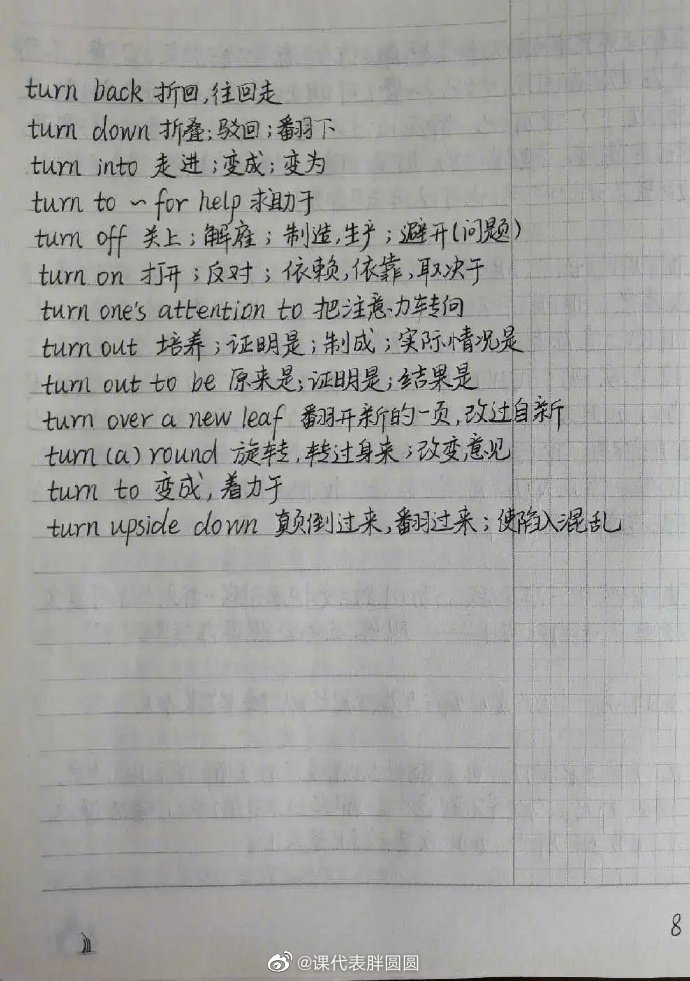 turn back 折回,往回走
turn down 折叠;驳回;翻下
turn into 走进;变成;变为
turn to ~ for help 求助于
turn off 关上;解雇;制造,生产;避开(问题)
turn on 打开;反对;依赖,依靠,取决于
turn one's attention to 把注意力转向
turn out 培养;证明是;制成;实际情况是
turn out to be 原来是;证明是;结果是
turn over a new leaf 翻开新的一页,改过自新
turn (a) round 旋转,转过身来;改变意见
turn to 变成,着力于
turn upside down 颠倒过来,翻过来;使陷入混乱
8
@课代表胖圆圆